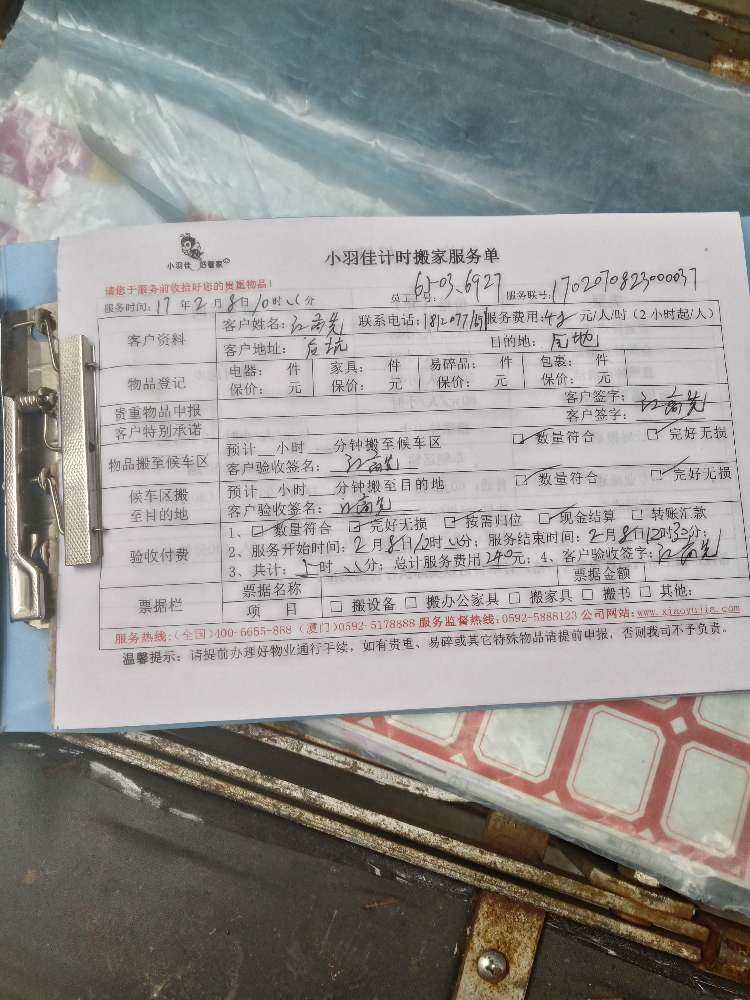 小羽佳 活管家
小羽佳计时搬家服务单
请您于服务前收拾好您的贵重物品!
服务时间: 17 年 2 月 8 日 10 时 分 员工工号: 6503.6927 服务联号: 170207082300037
客户资料 客户姓名: 联系电话: 服务费用: 元/人/时 (2小时起/人)
客户地址: 后坑 目的地:
物品登记 电器: 件 家具: 件 易碎品: 件 包裹: 件
保价: 元 保价: 元 保价: 元 保价: 元
贵重物品申报 客户签字:
客户特别承诺 客户签字:
物品搬至候车区 预计__小时__分钟搬至候车区 数量符合 完好无损
客户验收签名:
候车区搬至目的地 预计__小时__分钟搬至目的地 数量符合 完好无损
客户验收签名:
验收付费 1、 数量符合 完好无损 按需归位 现金结算 转账汇款
2、服务开始时间: 2 月 8 日 时 分; 服务结束时间: 2 月 8 日 12 时 30 分;
3、共计: 时 分; 总计服务费用 240 元; 4、客户验收签字:
票据栏 票据名称 票据金额
项 目 搬设备 搬办公家具 搬家具 搬书 其他:
服务热线: (全国)400-6655-888 (厦门)0592-5178888 服务监督热线: 0592-5888123 公司网站: www.xiaoyujia.com
温馨提示: 请提前办理好物业通行手续, 如有贵重、易碎或其它特殊物品请提前申报, 否则我司不予负责。